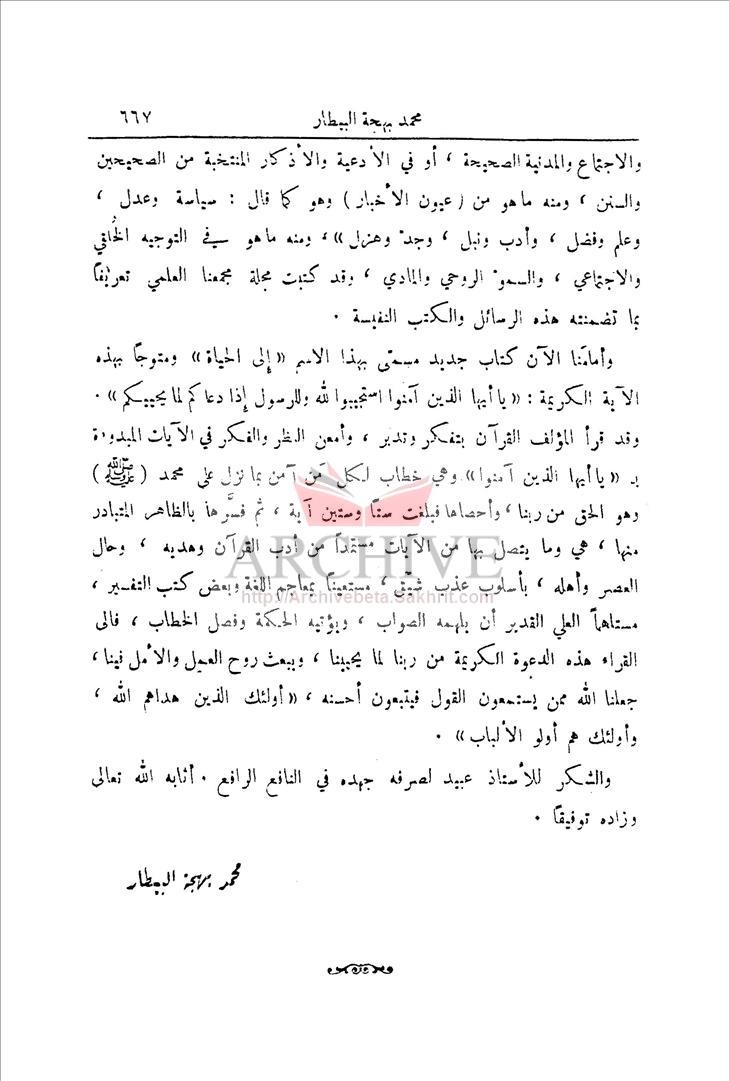 محمد بهجة البيطار ٦٦٧
والاجتماع والمدنية الصحيحة ، أو في الأدعية والأذكار المنتخبة من الصحيحين
والسنن ، ومنه ما هو من ( عيون الأخبار ) وهو كما قال : سياسة وعدل ،
وعلم وفضل ، وأدب ونبل ، وجدّ وهزل » ، ومنه ما هو في التوجيه الخُلقي
والاجتماعي ، والسموّ الروحي والمادي ، وقد كتبت مجلة مجمعنا العلمي تعريفاً
بما تضمنته هذه الرسائل والكتب النفيسة .
وأمامَنا الآن كتاب جديد مسمّى بهذا الاسم « إلى الحياة » ومتوجاً بهذه
الآية الكريمة : « يا أيها الذين آمنوا استجيبوا لله وللرسول إذا دعاكم لما يحييكم » .
وقد قرأ المؤلف القرآن بتفكر وتدبر ، وأمعن النظر والفكر في الآيات المبدوءة
بـ « يا أيها الذين آمنوا » وهي خطاب لكل مَن آمن بما نزل على محمد ( ﷺ )
وهو الحق من ربنا ، وأحصاها فبلغت ستّاً وستين آية ، ثم فسَّرها بالظاهر المتبادر
منها ، هي وما يتصل بها من الآيات مستمداً من أدب القرآن وهديه ، وحال
العصر وأهله ، بأسلوب عذب شيّق ، مستعيناً بمعاجم اللغة وبعض كتب التفسير ،
مستلهماً العلي القدير أن يلهمه الصواب ، ويؤتيه الحكمة وفصل الخطاب ، فالى
القراء هذه الدعوة الكريمة من ربنا لما يحيينا ، ويبعث روح العمل والأمل فينا ،
جعلنا الله ممن يستمعون القول فيتبعون أحسنه ، « أولئك الذين هداهم الله ،
وأولئك هم أولو الألباب » .
والشكر للأستاذ عبيد لصرفه جهده في النافع الرافع . أثابه الله تعالى
وزاده توفيقاً .
محمد بهجة البيطار
ARCHIVE
http://Archivebeta.Sakhrit.com